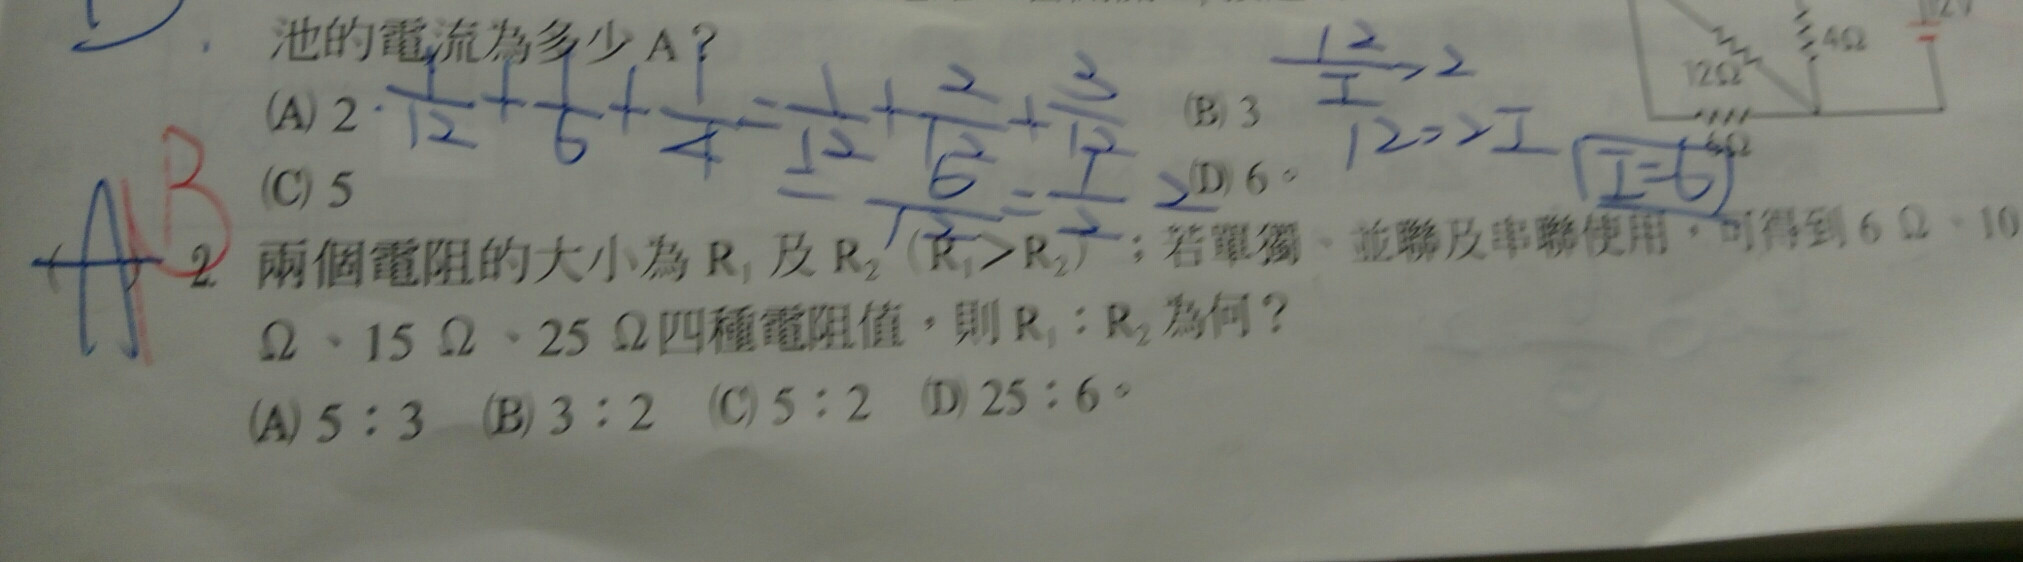 池的電流為多少 A?
(A) 2 (B) 3
1/12 + 1/6 + 1/4 = 1/12 + 2/12 + 3/12
12/I = 2
12Ω 4Ω 12V
12=2I
(C) 5 (D) 6。
= 6/12 = 1/2 2
I=6
6Ω
A B
2 兩個電阻的大小為 R₁ 及 R₂(R₁>R₂);若單獨、並聯及串聯使用,可得到 6 Ω、10
Ω、15 Ω、25 Ω四種電阻值,則 R₁:R₂ 為何?
(A) 5:3 (B) 3:2 (C) 5:2 (D) 25:6。